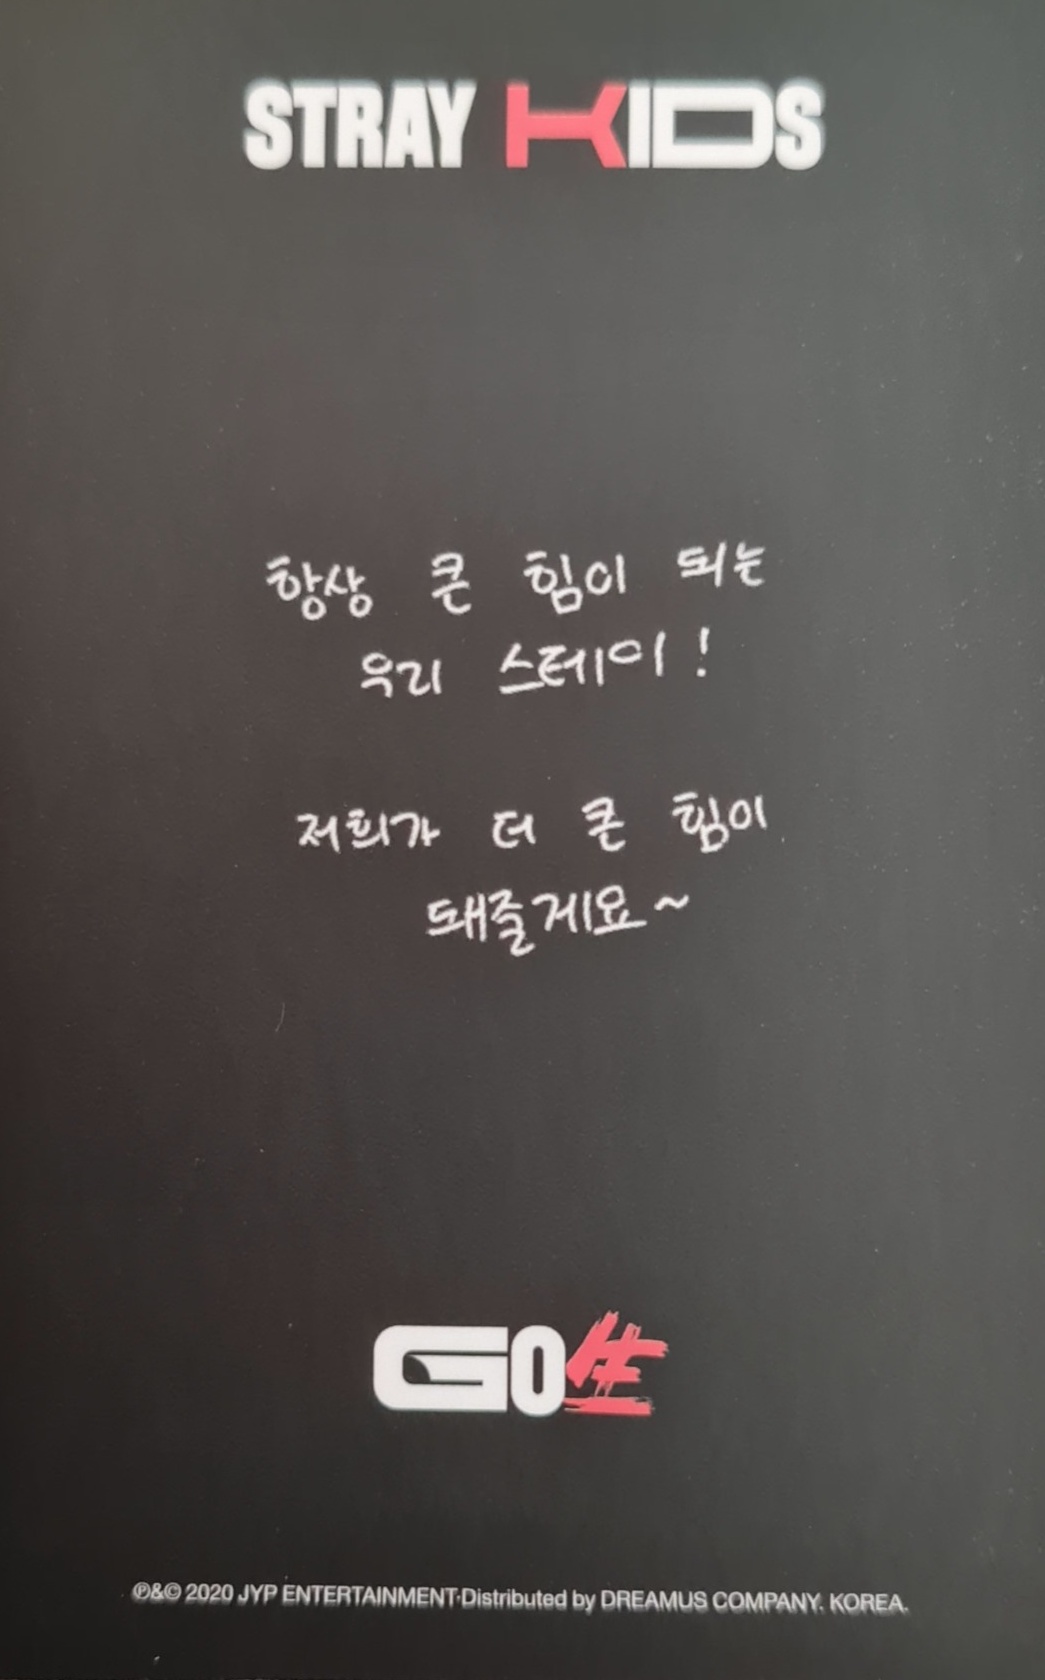 STRAY KIDS
항상 큰 힘이 되는
우리 스테이!
저희가 더 큰 힘이
돼줄게요~
GO生
℗&© 2020 JYP ENTERTAINMENT·Distributed by DREAMUS COMPANY. KOREA.